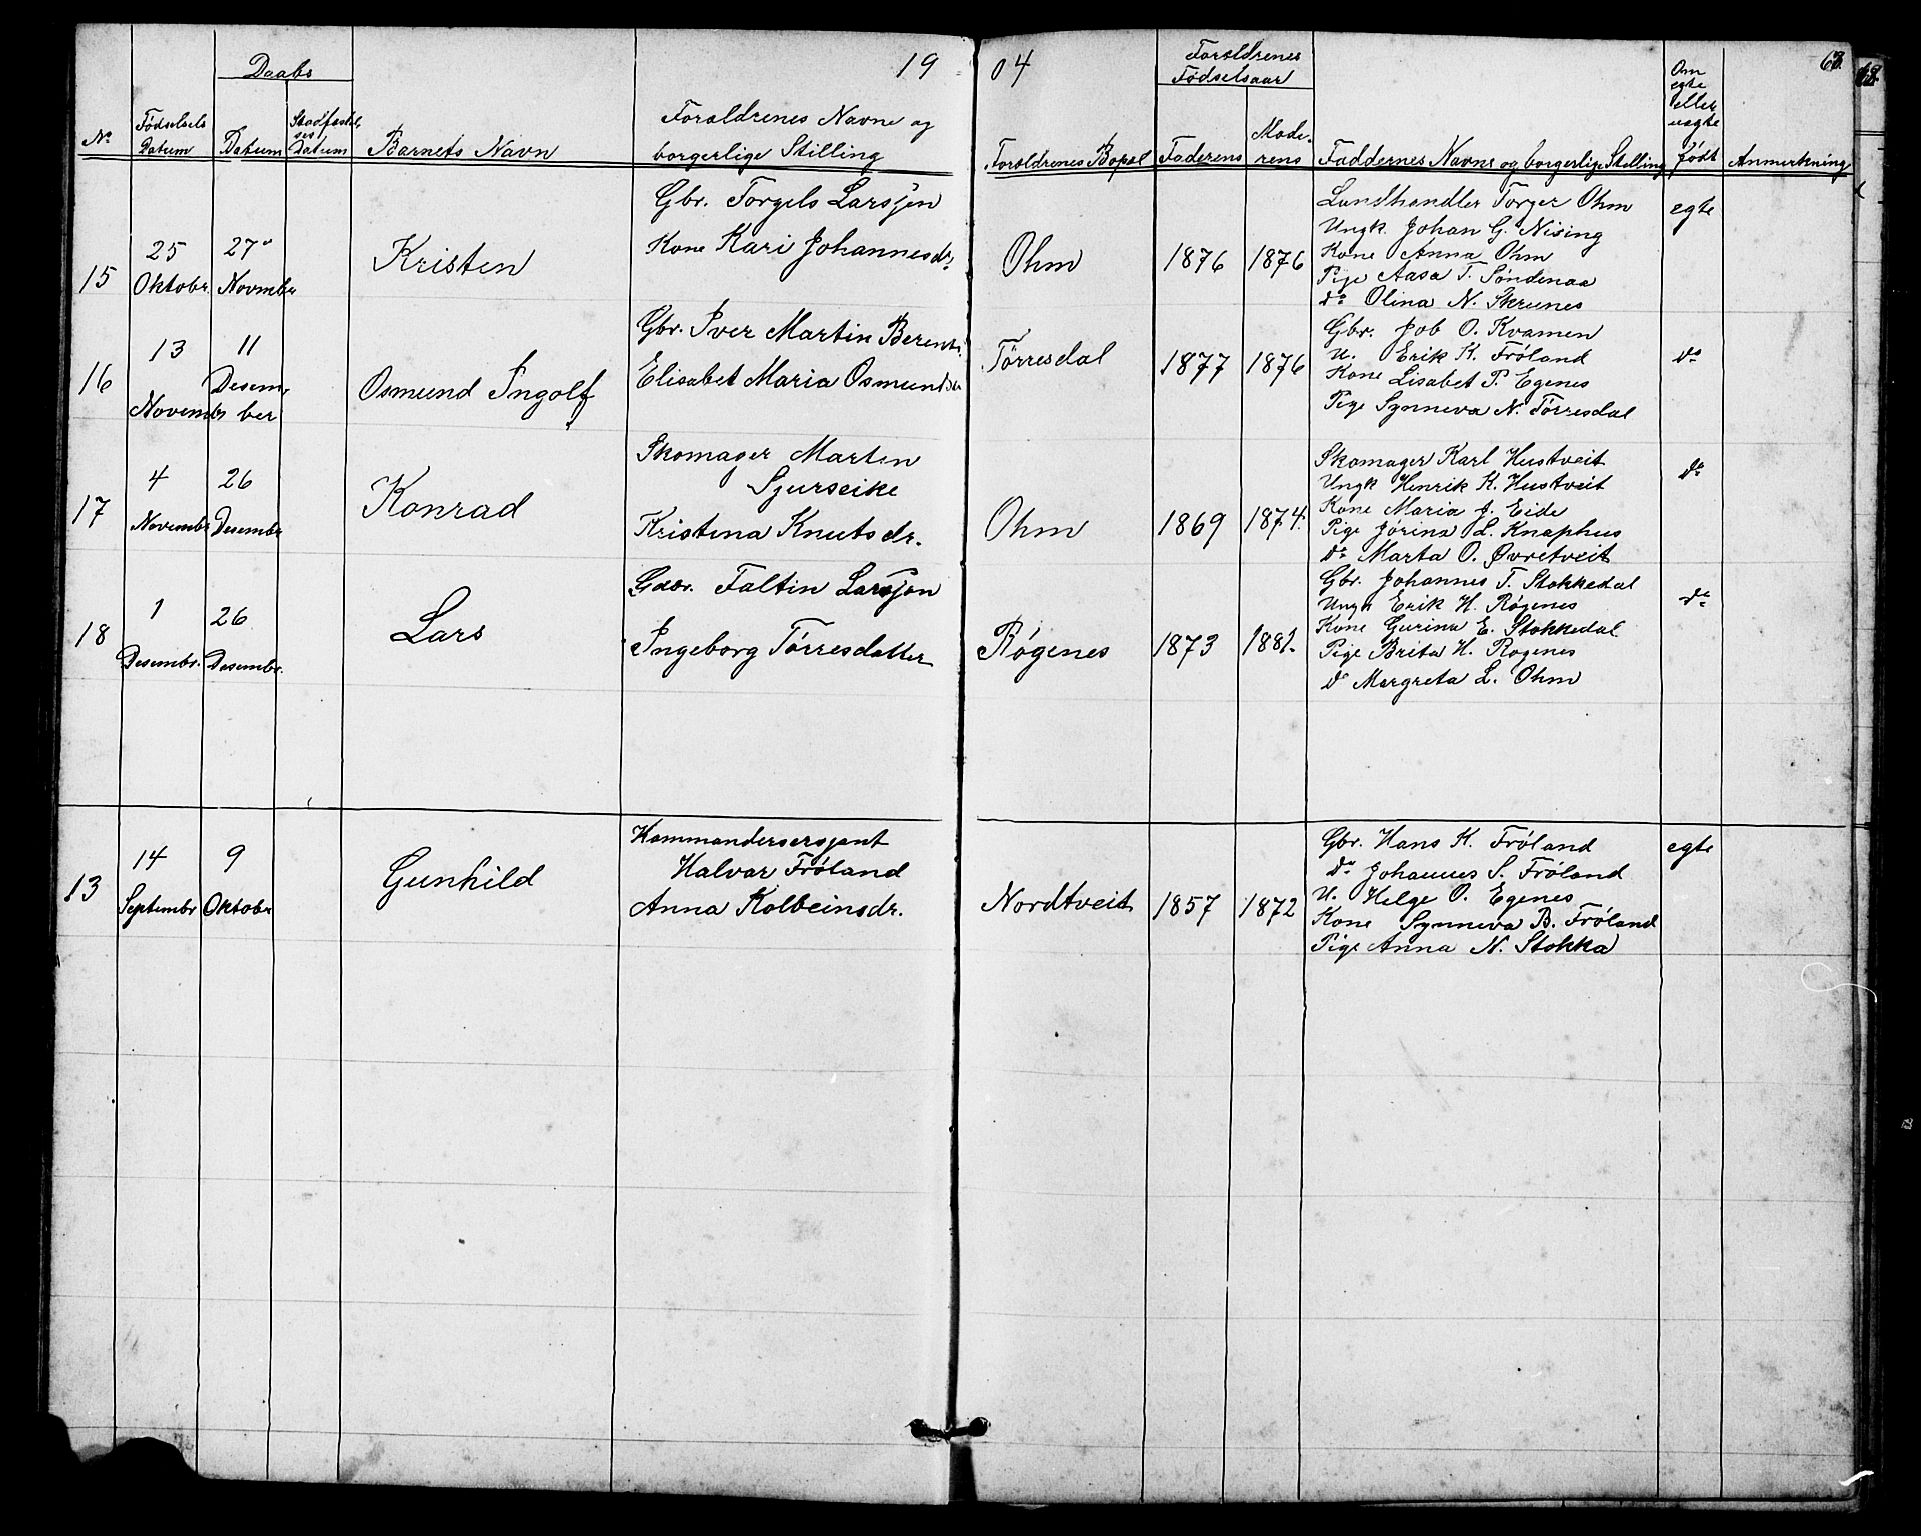 19 04
63.
Daabs
Forældrenes
Fødselsaar
Nº
Fødselsels
Datum
Datum
Stadfæstel,
ses
Datum
Barnets Navn
Forældrenes Navne og
borgerlige Stilling
Forældrenes Bopæl
Faderens
Mode-
rens
Faddernes Navne og borgerlige Stilling
Om
egte
eller
uegte
født
Anmerkning
15
25
Oktobr.
27º
Novmbr
Kristen
Gbr. Torgils Larsjøn
Kone Kari Johannesdr.
Ohm
1876
1876
Landhandler Torger Ohm
Ungk. Johan G. Nising
Kone Anna Ohm
Pige Aasa T. Søndenaa
dº Olina N. Skrunes
egte
16
13
Novembr
11
Desem,
ber
Osmund Ingolf
Gbr. Iver Martin Berents.
Elisabet Maria Osmundsdr
Tørresdal
1877
1876
Gbr. Job O. Kvamen
U. Erik K. Frøland
Kone Lisabet P. Egenes
Pige Synneva N. Tørresdal
dº
17
4
Novembr
26
Desembr
Konrad
Skomager Martin
Sjurseike
Kristina Knutsdr.
Ohm
1869
1874.
Skomager Karl Hustveit
Ungk Henrik K. Hustveit
Kone Maria J. Eide
Pige Jørina L. Knaphus
dº Marta O. Øvretveit
dº
18
1
Desembr.
26
Desembr.
Lars
Gdbr. Faltin Larsjøn
Ingeborg Tørresdatter
Røgenes
1873
1881.
Gbr. Johannes T. Stokkedal
Ungk Erik H. Røgenes
Kone Gurina E. Stokkedal
Pige Brita H. Røgenes
dº Margreta L. Ohm
dº
13
14
Septembr
9
Oktobr
Gunhild
Kommandersersjant
Halvar Frøland
Anna Kolbeinsdr.
Nordtveit
1857
1872
Gbr. Hans K. Frøland
dº Johannes S. Frøland
U. Helge O. Egenes
Kone Synneva B. Frøland
Pige Anna N. Stokka
egte